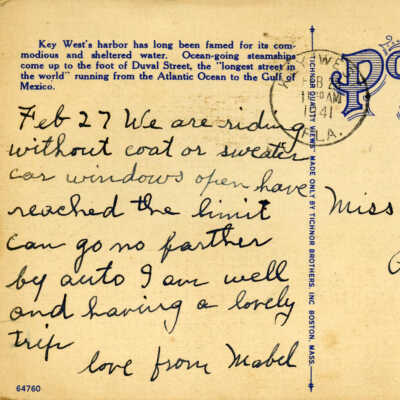 Key West's harbor has long been famed for its com-
modious and sheltered water. Ocean-going steamships
come up to the foot of Duval Street, the "longest street in
the world" running from the Atlantic Ocean to the Gulf of
Mexico.
Feb 27 We are riding
without coat or sweater
car windows open have
reached the limit
can go no farther
by auto I am well
and having a lovely
trip
love from Mabel
64760
TICHNOR QUALITY VIEWS MADE ONLY BY TICHNOR BROTHERS, INC. BOSTON, MASS.
KEY WEST
FEB
AM
1941
FLA.
Miss